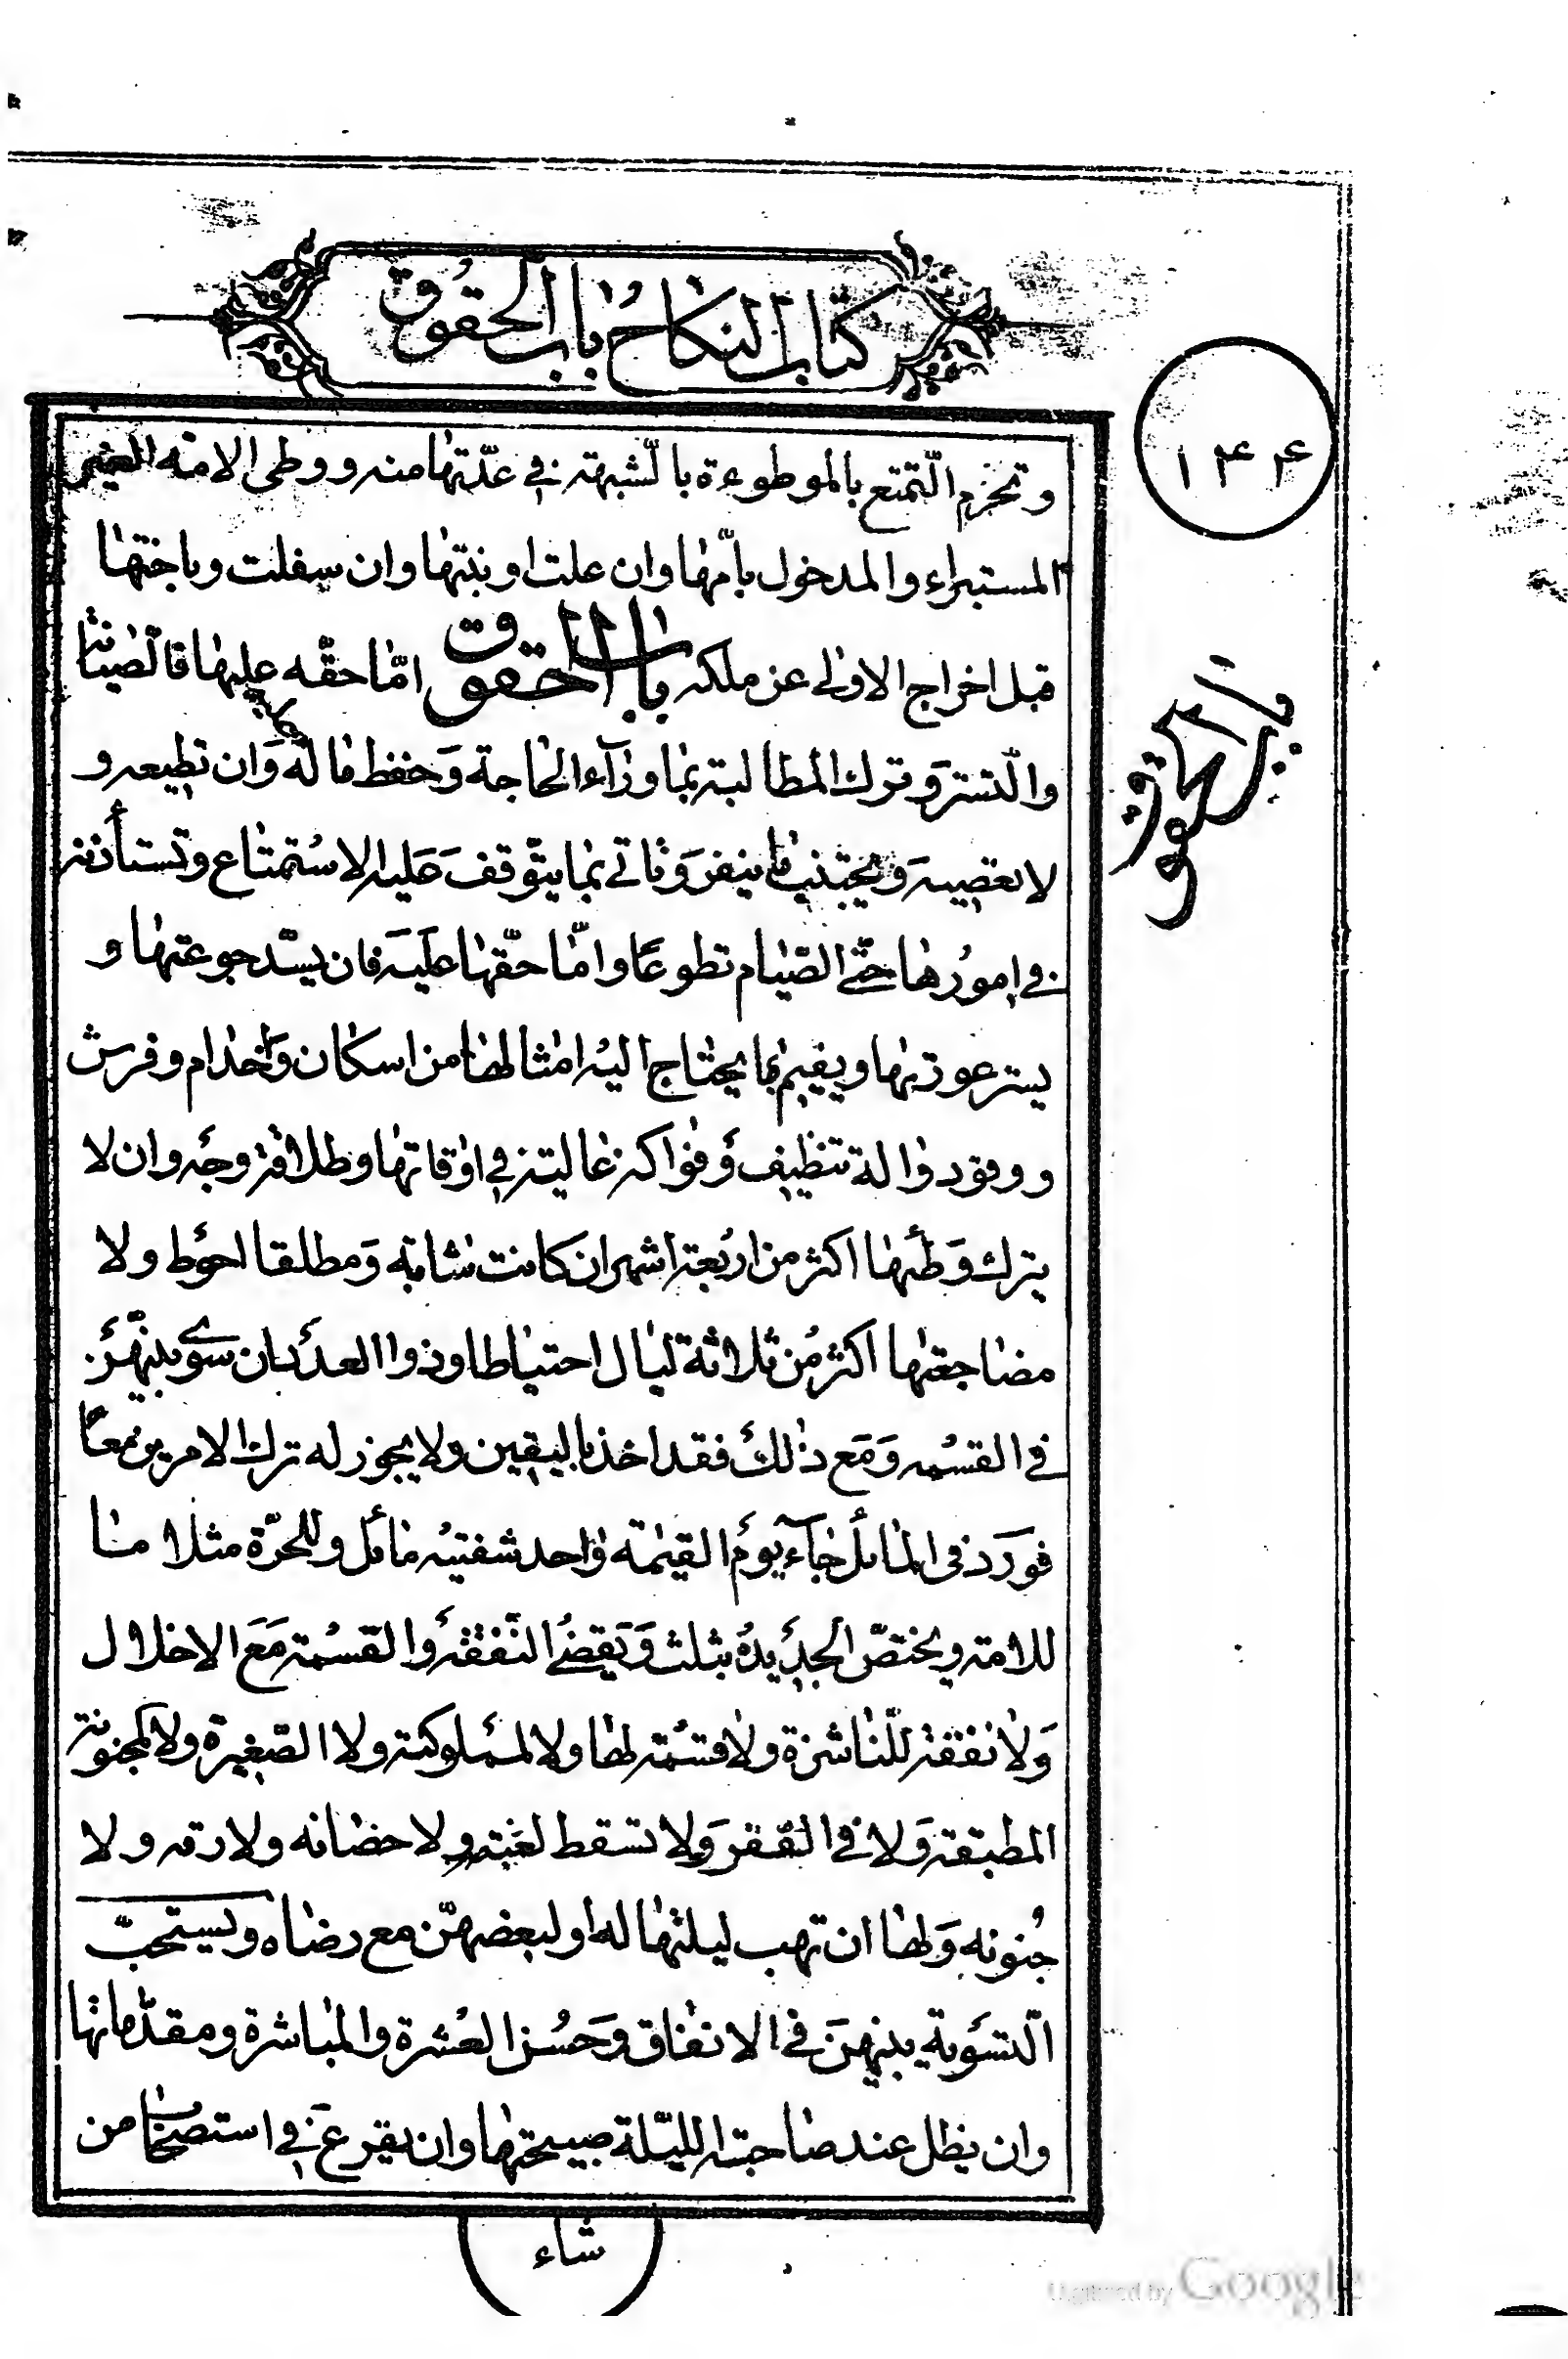 كتاب النكاح باب الحقوق
۱۴۴
وتحرم التمتع بالموطوءة بالشبهة في عدّتها منه ووطى الامة الغير
المستبراء والمدخول بامّها وان علت او بنتها وان سفلت وباختها
قبل اخراج الاولى عن ملكه باب الحقوق امّا حقّه عليها فالصّيانة
باب الحقوق
والتستر وترك المطالبة بما وراء الحاجة وحفظ ماله وان تطيعه و
لا تعصيه وتجتنب ما ينفر وتاتي بما يتوقف عليه الاستمتاع وتستأذنه
في امورها حتّى الصّيام تطوعًا وامّا حقّها عليه فان يسدّ جوعتها و
يستر عورتها ويقيم بما يحتاج اليه امثالها من اسكان واخدام وفرش
ووقود والة تنظيف وفواكه غالية في اوقاتها وطلاقة وجه وان لا
يترك وطئها اكثر من اربعة اشهر ان كانت شابة ومطلقا احوط ولا
مضاجعتها اكثر من ثلاثة ليال احتياطا وذوا العدد ان سوى بينهنّ
في القسمة ومع ذلك فقد اخذ باليقين ولا يجوز له ترك الامرين معًا
فورد في المائل جاء يوم القيمة واحد شفتيه مائل وللحرّة مثلا ما
للامة ويختصّ الجديدة بثلث ويقضى النفقة والقسمة مع الاخلال
ولا نفقة للناشزة ولا قسمة لها ولا لمملوكته ولا الصّغيرة ولا المجنونة
المطبقة ولا في السفر ولا تسقط ولا حضانه ولا رقه ولا
جنونه ولها ان تهب ليلتها له او لبعضهنّ مع رضاه ويستحبّ
التسوية بينهن في الانفاق وحسن العشرة والمباشرة ومقدّماتها
وان يظل عند صاحبة الليلة صبيحتها وان يقرع في استصحاب من
شاء
Digitized by Google